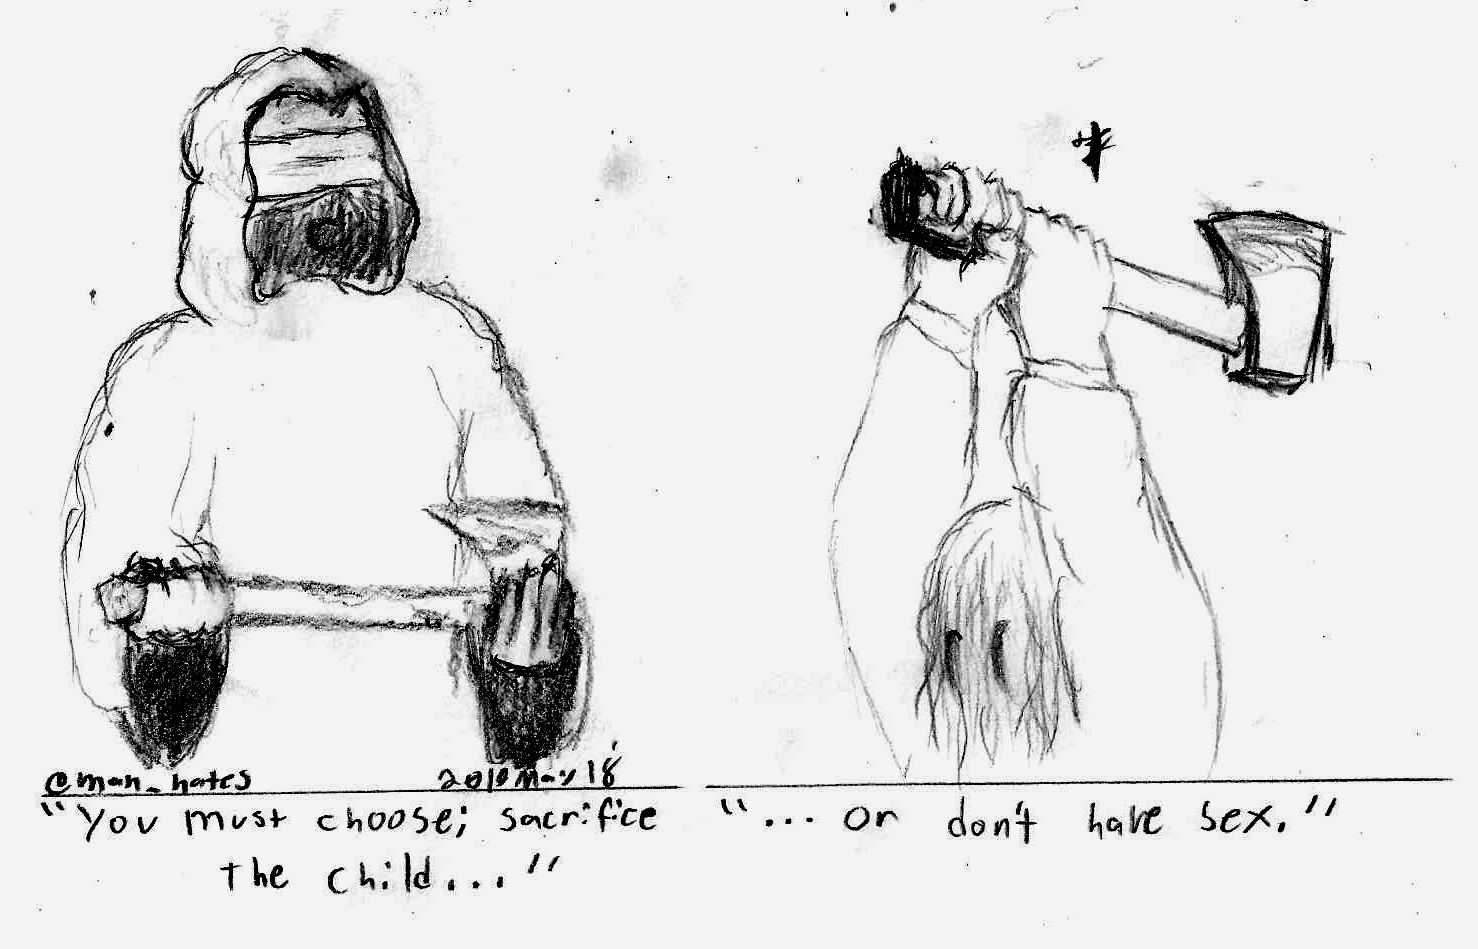 @man_hates
2018 May 18
"You must choose; sacrifice
the child..."
"... or don't have sex."